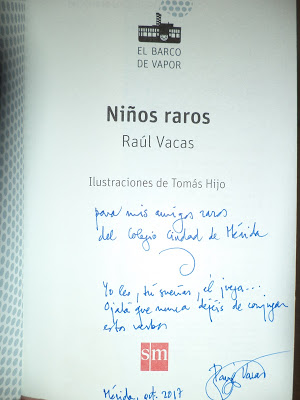 EL BARCO
DE VAPOR
Niños raros
Raúl Vacas
Ilustraciones de Tomás Hijo
para mis amigos raros
del Colegio Ciudad de Mérida
Yo leo, tú sueñas, él juega...
Ojalá que nunca dejéis de conjugar
estos verbos
sm
Raúl Vacas
Mérida, oct. 2017